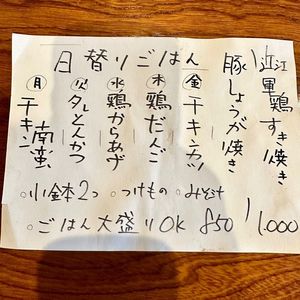 日替りごはん
近江軍鶏すき焼き
豚しょうが焼き
㊎チキンカツ
㊍鶏だんご
㊌鶏からあげ
㊋タレとんかつ
㊊チキン南蛮
。小鉢2つ 。つけもの 。みそ汁
。ごはん大盛りOK 850 1,000